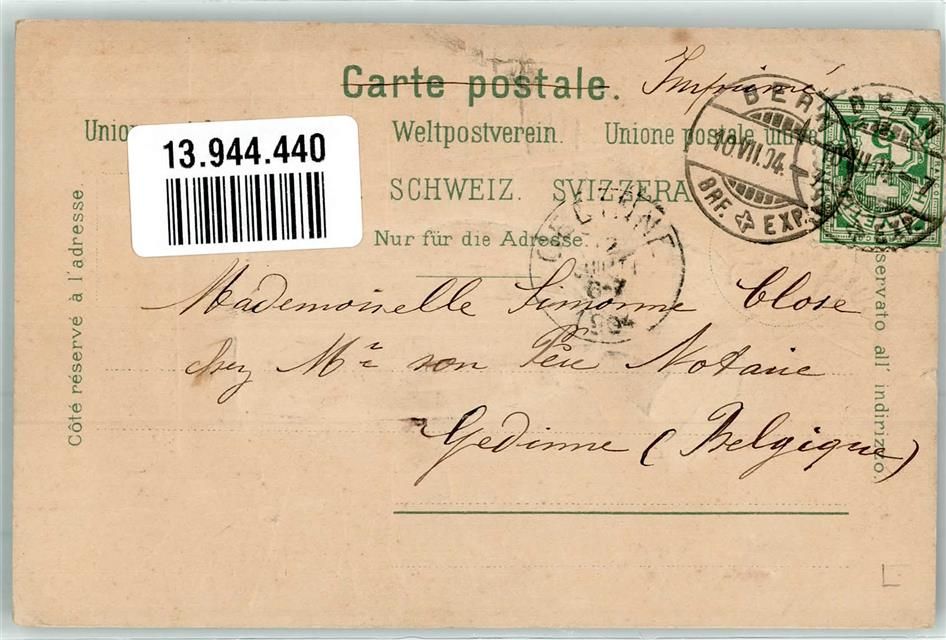 Carte postale. Imprimé
Union
Weltpostverein. Unione postale unive
13.944.440
SCHWEIZ. SVIZZERA
Nur für die Adresse.
BERN
10.VII.04.
BRF. EXP.
BERN
GEDINNE
1904
5
Mademoiselle Simonne Close
chez Mr son Père Notaire
Gedinne (Belgique)
Côté réservé à l'adresse.
riservato all' indirizzo.